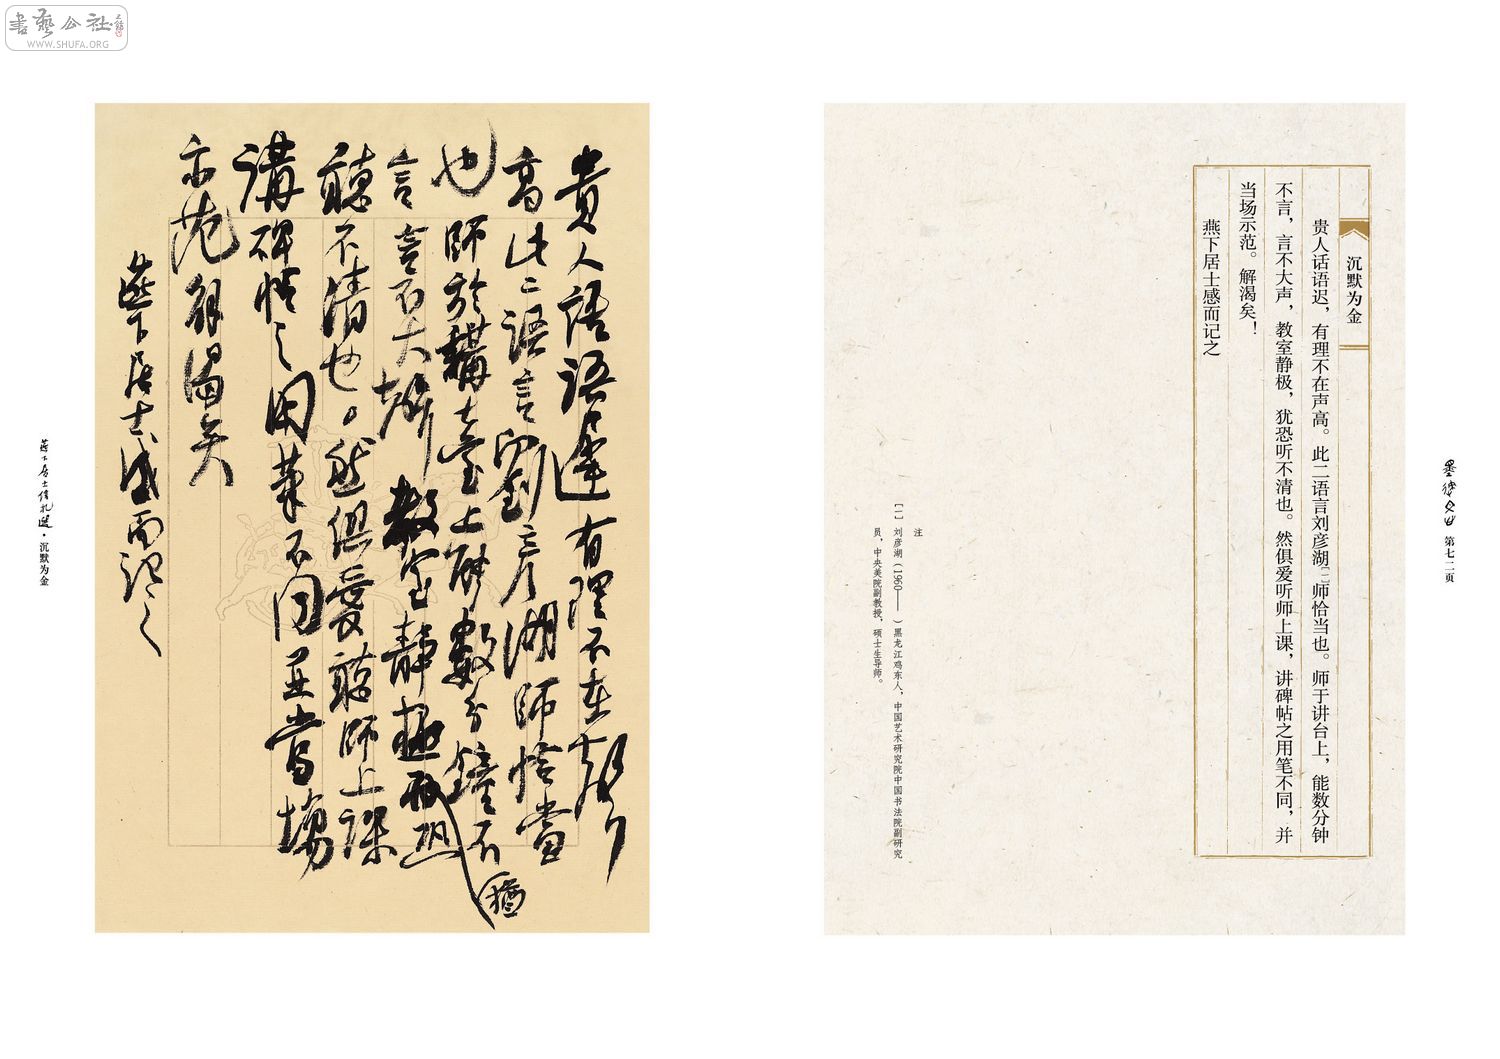 書藝公社
WWW.SHUFA.ORG
第七二页
沉默为金
贵人话语迟，有理不在声高。此二语言刘彦湖[一]师恰当也。师于讲台上，能数分钟
不言，言不大声，教室静极，犹恐听不清也。然俱爱听师上课，讲碑帖之用笔不同，并
当场示范。解渴矣！
燕下居士感而记之
注
[一] 刘彦湖（1960—— ）黑龙江鸡东人，中国艺术研究院中国书法院副研究
员，中央美院副教授，硕士生导师。
貴人語語遲有理不在聲
高此二語言劉彥湖師恰當
也師於講臺上能數分鐘不
言言不大聲教室靜極恐
猶
聽不清也。然俱愛聽師上課
講碑帖之用筆不同並當場
示范解渴矣
燕下居士感而記之
燕下居士信札選·沉默为金